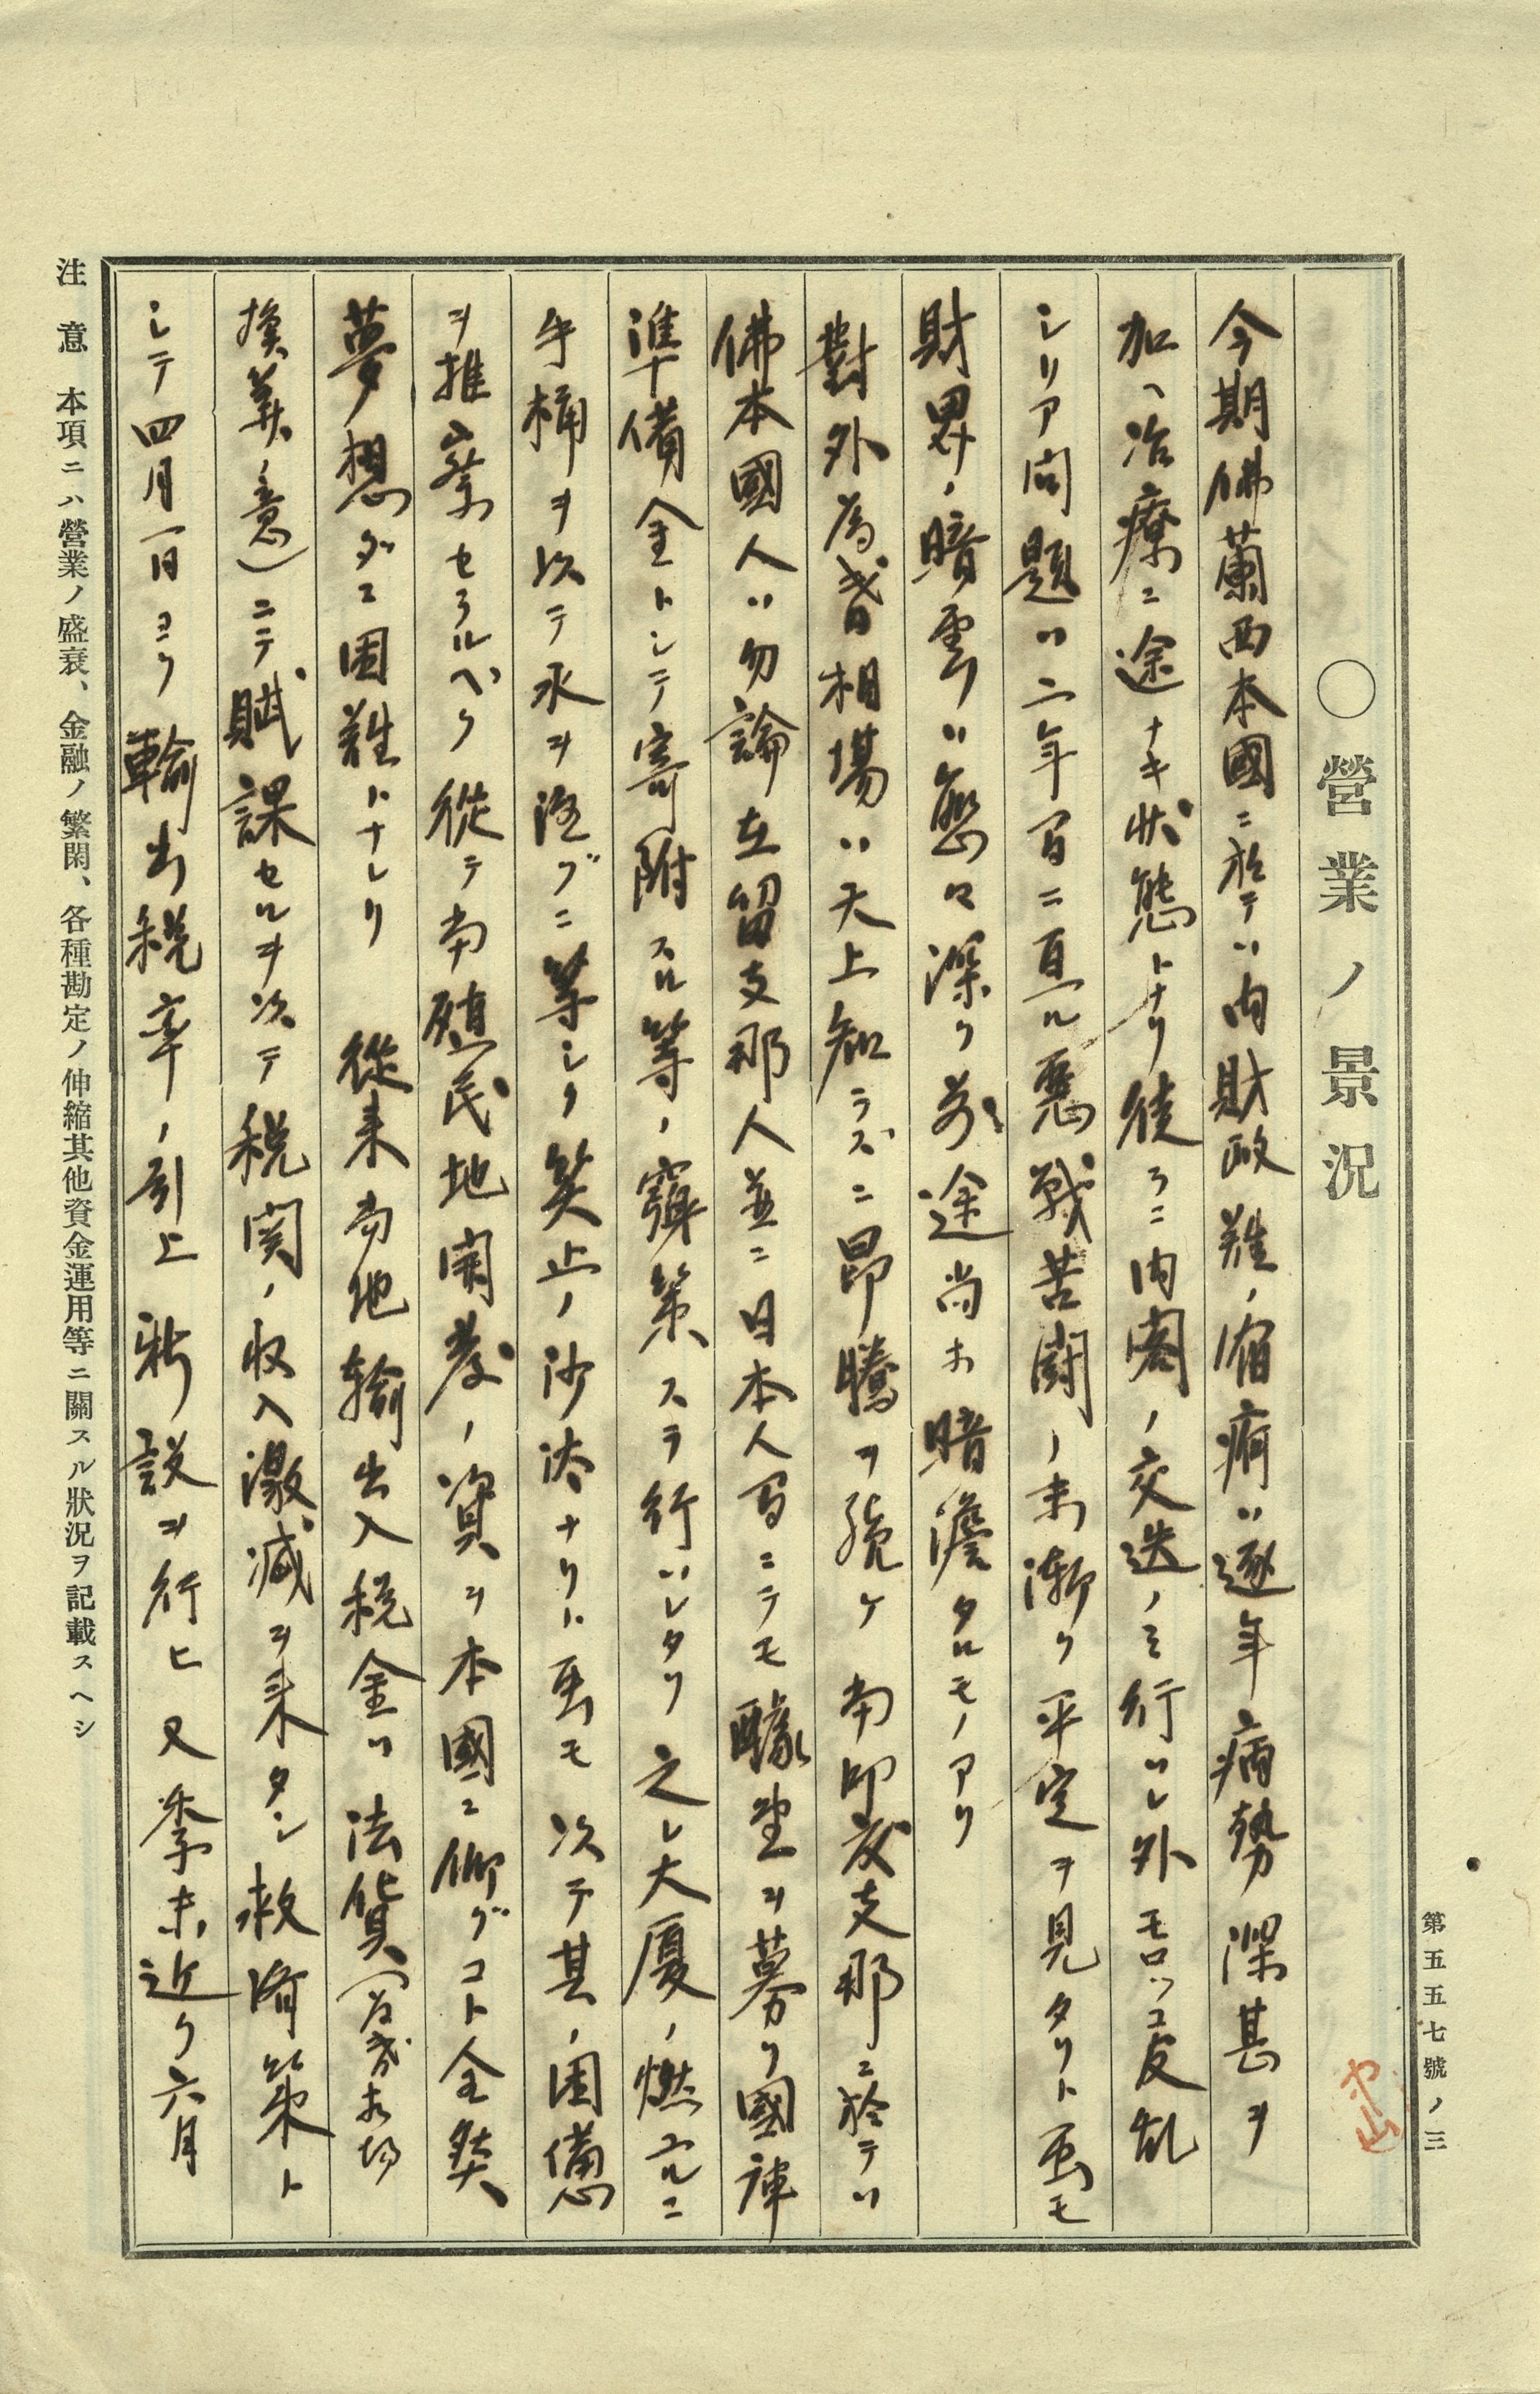 第五五七號ノ三
○營業ノ景況
今期佛蘭西本國ニ於テハ内財政難ノ宿痾ハ逐年病勢深甚ヲ
加ヘ治療ニ途ナキ状態トナリ徒ラニ内閣ノ交迭ノミ行ハレ外モロッコ反乱
シリア問題ハ二年間ニ亘ル悪戦苦闘ノ末漸ク平定ヲ見タリト虽モ
財界ノ暗雲ハ愈々深ク前途尚ホ暗澹タルモノアリ
對外為替相場ハ天上知ラズニ昂騰ヲ続ケ南印度支那ニ於テハ
佛本國人ハ勿論在留支那人並ニ日本人間ニテモ醵金ヲ募リ國庫
準備金トシテ寄附スル等ノ窮策スラ行ハレタリ之レ大厦ノ燃ユルニ
手桶ヲ以テ水ヲ注グニ等シク笑止ノ沙汰ナリト虽モ以テ其ノ困憊
ヲ推察セラルベク従テ当殖民地開発ノ資ヲ本國ニ仰グコト全然
夢想ダニ困難トナレリ 従来当地輸出入税金ハ法貨（為替相場
換算ノ意）ニテ賦課セルヲ以テ税関ノ収入激減ヲ来タシ救済策ト
シテ四月一日ヨリ輸出税率ノ引上新設ヲ行ヒ又季末近ク六月
注意 本項ニハ營業ノ盛衰、金融ノ繁閑、各種勘定ノ伸縮其他資金運用等ニ關スル狀況ヲ記載スヘシ